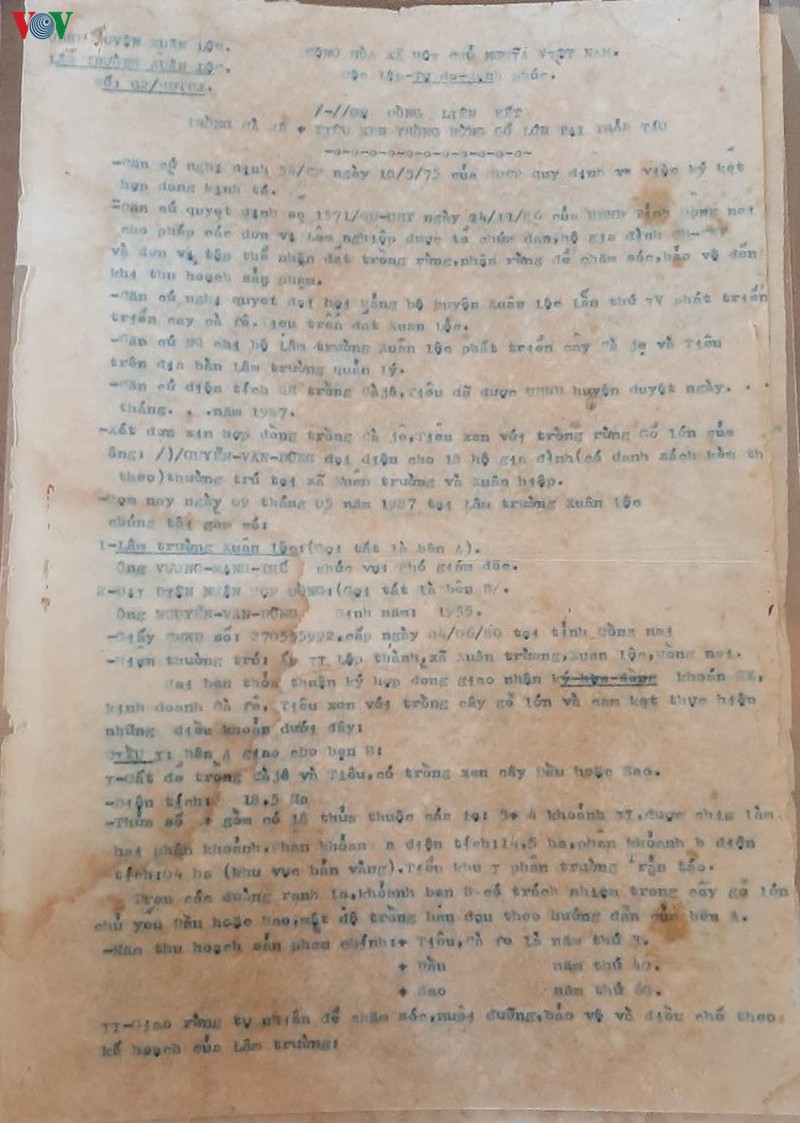 VOV
HUYỆN XUÂN LỘC.
LÂM TRƯỜNG XUÂN LỘC.
CỘNG HÒA XÃ HỘI CHỦ NGHĨA VIỆT NAM.
Độc lập-Tự do-Hạnh phúc.
ĐỒNG LIÊN KẾT
TRỒNG CÀ FÊ + TIÊU XEN TRỒNG RỪNG GỖ LỚN TẠI TRẢN TÁO
-Căn cứ nghị định ngày 10/3/75 của quy định về việc ký kết
hợp đồng kinh tế.
-Căn cứ quyết định số ngày của UBND Tỉnh Đồng nai
cho phép các đơn vị Lâm nghiệp được tổ chức dân,hộ gia đình
và đơn vị tập thể nhận đất trồng rừng,nhận rừng để chăm sóc,bảo vệ đến
khi thu hoạch sản phẩm.
-Căn cứ nghị quyết đại hội Đảng bộ huyện Xuân Lộc lần thứ IV phát triển
triển cây cà fê. tiêu trên đất Xuân Lộc.
-Căn cứ chi bộ Lâm trường Xuân Lộc phát triển cây Cà fê và Tiêu
trên địa bàn Lâm trường quản lý.
-Căn cứ diện tích trồng Càfê,Tiêu đã được UBND huyện duyệt ngày. . .
tháng. . .năm 1987.
-Xét đơn xin hợp đồng trồng Cà fê,Tiêu xen với trồng rừng Gỗ lớn của
ông: /)/GUYỄN-VĂN-DŨNG đại diện cho 18 hộ gia đình(có danh sách kèm th
theo)thường trú tại xã Xuân trường và Xuân hiệp.
-Hôm nay ngày 09 tháng 05 năm 1987 tại Lâm trường Xuân lộc
chúng tôi gồm có:
1-Lâm trường Xuân lộc:(Gọi tắt là bên A).
Ông VƯƠNG-MẠNH-THẾ chức vụ: Phó giám đốc.
2-ĐẠI DIỆN NHẬN HỢP ĐỒNG:(Gọi tắt là bên B/.
Ông NGUYỄN-VĂN-DŨNG Sinh năm: 1955.
-Giấy CMND số: 270595992,cấp ngày 04/06/80 tại tỉnh Đồng nai
-Hiện thường trú: Ấp II Lập thành,xã Xuân trường,Xuân lộc,Đồng nai.
Hai bên thỏa thuận ký hợp đồng giao nhận ký hợp đồng khoán
kinh doanh Cà fê, Tiêu xen với trồng cây gỗ lớn và cam kết thực hiện
những điều khoản dưới đây:
ĐIỀU I: Bên A giao cho bên B:
I-Đất để trồng Càfê và Tiêu,có trồng xen cây Dầu hoặc Sao.
-Diện tích: 18,5 Ha
-Thửa số gồm có 18 thửa thuộc các lô: 3+ 4 khoảnh II,được chia làm
hai phân khoảnh.Phân khoảnh a diện tích:14,5 ha,phân khoảnh b diện
tích:04 ha (khu vực bản vàng).Tiểu khu I phân trường Trản táo.
Trên các đường ranh lô,khoảnh bên B có trách nhiệm trồng cây gỗ lớn
chủ yếu Dầu hoặc Sao,mật độ trồng ban đầu theo hướng dẫn của bên A.
-Năm thu hoạch sản phẩm chính:+ Tiêu,Cà fê là năm thứ 3.
+ Dầu năm thứ 40.
+ Sao năm thứ 60.
II-Giao rừng tự nhiên để chăm sóc,nuôi dưỡng,bảo vệ và điều chế theo
kế hoạch của Lâm trường: